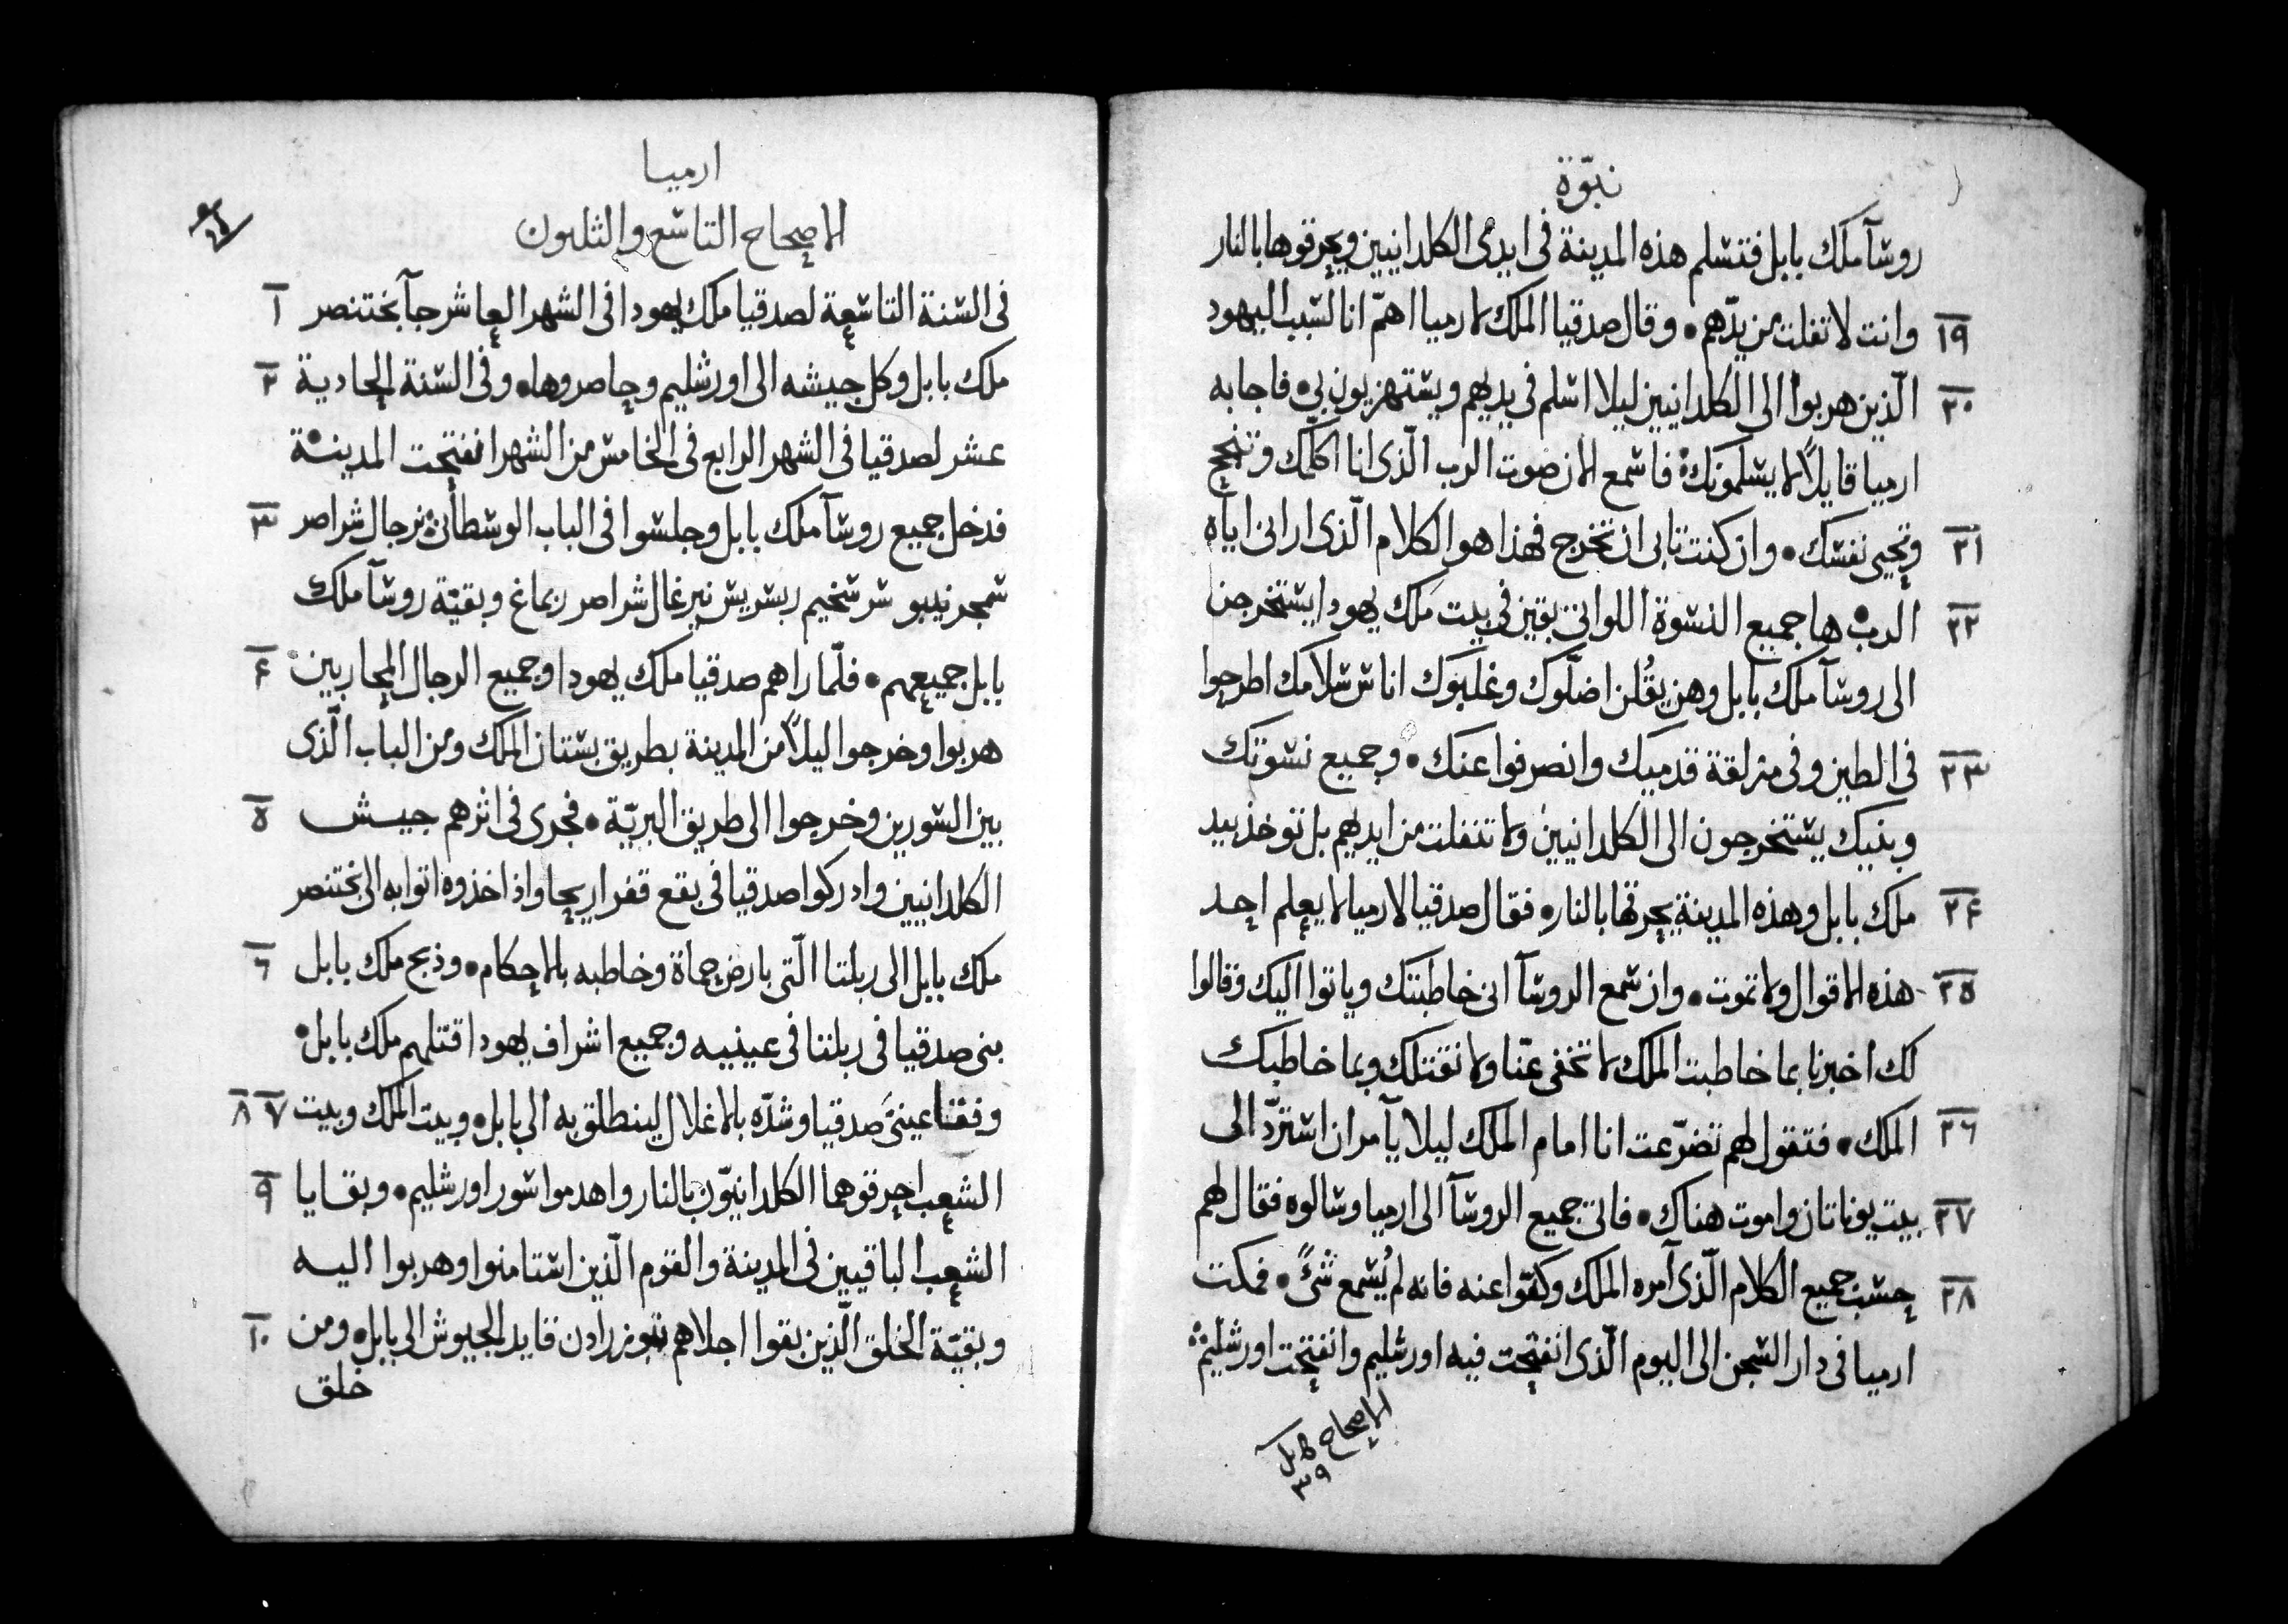 نبوّة
روسآ ملك بابل فتسلم هذه المدينة في ايدى الكلدانيين ويحرقوها بالنار
١٩ وانت لا تفلت من يدّهم • وقال صدقيا الملك لارميا اهمّ انا لسبب اليهود
٢٠ الّذين هربوا الى الكلدانيين ليلا اسلم في يديهم ويستهزيون بي • فاجابه
ارميا قايلاً لا يسلمونك فاسمع الان صوت الرب الّذى انا اكلّمك وتنجح
٢١ وتحيى نفسك • وان كنت تابى ان تخرج فهذا هو الكلام الّذى ارانى اياه
٢٢ الرب • ها جميع النسوة اللواتى بقين في بيت ملك يهودا يستخرجن
الى روسآ ملك بابل وهن يقُلن اضلّوك وغلبوك اناس سلامك اطرحوا
٢٣ في الطين وفي مزلقة قدميك وانصرفوا عنك • وجميع نسوتك
وبنيك يستخرجون الى الكلدانيين ولا تتفلت من ايديهم بل توخذ بيد
٢٤ ملك بابل وهذه المدينة يحرقها بالنار • فقال صدقيا لارميا لا يعلم احد
٢٥ هذه الاقوال ولا تموت • وان سمع الروسآ انى خاطبتك وياتوا اليك وقالوا
لك اخبرنا بما خاطبت الملك لا تخفى عنّا ولا نقتلك وبما خاطبك
٢٦ الملك • فتقول لهم تضرّعت انا امام الملك ليلا يآمر ان استردّ الى
٢٧ بيت يوناتان واموت هناك • فاتى جميع الروسآ الى ارميا وسالوه فقال لهم
٢٨ حسب جميع الكلام الّذى آمره الملك وكفّوا عنه فانه لم يُسمع شىءً • فمكت
ارميا في دار السجن الى اليوم الّذى انفتحت فيه اورشليم وانفتحت اورشليم
الاصحاح
٣٩
ارميا
الاصحاح التاسع والثلثون
في السنة التاسعة لصدقيا ملك يهودا في الشهر العاشر جآ بختنصر ١
ملك بابل وكل جيشه الى اورشليم وحاصروها • وفي السنة الحادية ٢
عشر لصدقيا في الشهر الرابع في الخامس من الشهر انفتحت المدينة
فدخل جميع روسآ ملك بابل وجلسوا في الباب الوسطانى نرجال شراصر ٣
سمجرنيبو سرسخيم ربسريس نيرغال شراصر ربماغ وبقيّة روسآ ملك
بابل جميعهم • فلمّا راهم صدقيا ملك يهودا وجميع الرجال المحاربين ٤
هربوا وخرجوا ليلاً من المدينة بطريق بستان الملك ومن الباب الّذى
بين السورين وخرجوا الى طريق البريّة • فجرى في اثرهم جيش ٥
الكلدانيين وادركوا صدقيا في بقع قفر اريحا واذ اخذوه اتوا به الى بختنصر
ملك بابل الى ربلتا الّتى بارض حماة وخاطبه بالاحكام • وذبح ملك بابل ٦
بنى صدقيا في ربلتا في عينيه وجميع اشراف يهودا قتلهم ملك بابل •
وفقا عينىَ صدقيا وشدّه بالاغلال لينطلق به الى بابل • وبيت الملك وبيت ٧ ٨
الشعب احرقوهما الكلدانيوّن بالنار واهدموا سور اورشليم • وبقايا ٩
الشعب الباقيين في المدينة والقوم الّذين استامنوا وهربوا اليه
وبقيّة الخلق الّذين بقوا اجلاهم نبوزرادن قايد الجيوش الى بابل • ومن ١٠
خلق